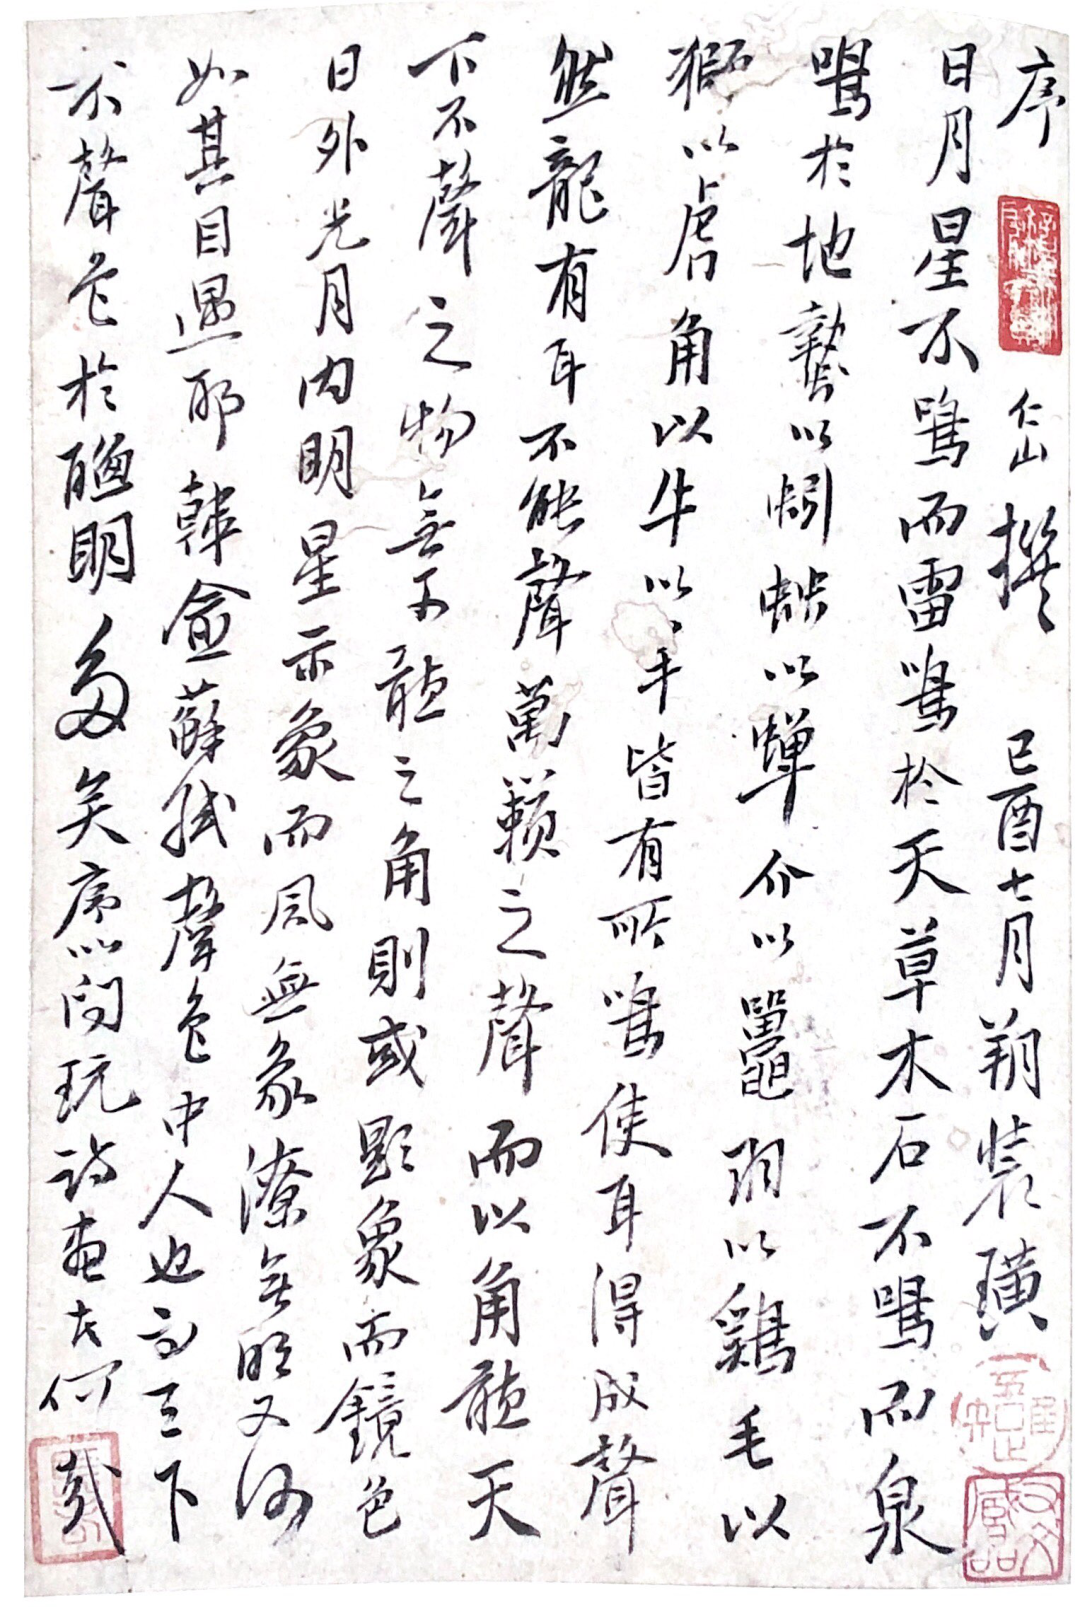 序 仚山撰 己酉七月朔裝璜
日月星不鳴而雷鳴於天草木石不鳴而泉
鳴於地蟄以蚓蛙以蟬介以鼉羽以鷄毛以
猢以唐角以牛以羊皆有所鳴使耳得成聲
然龍有耳不能聲萬籟之聲而以角聽天
下不聲之物無不聽之角則或顯象而鏡色
日外光月內明星示象而風無象潦無晤又何
如其目遇耶韓僉蘇銭聲色中人也而天下
不聲色於聰明多矣序以問玩詩畫者何
哉